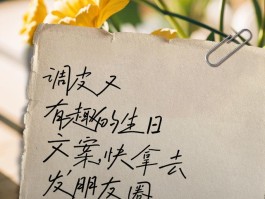 调皮又
有趣的生日
文案,快拿去
发朋友圈